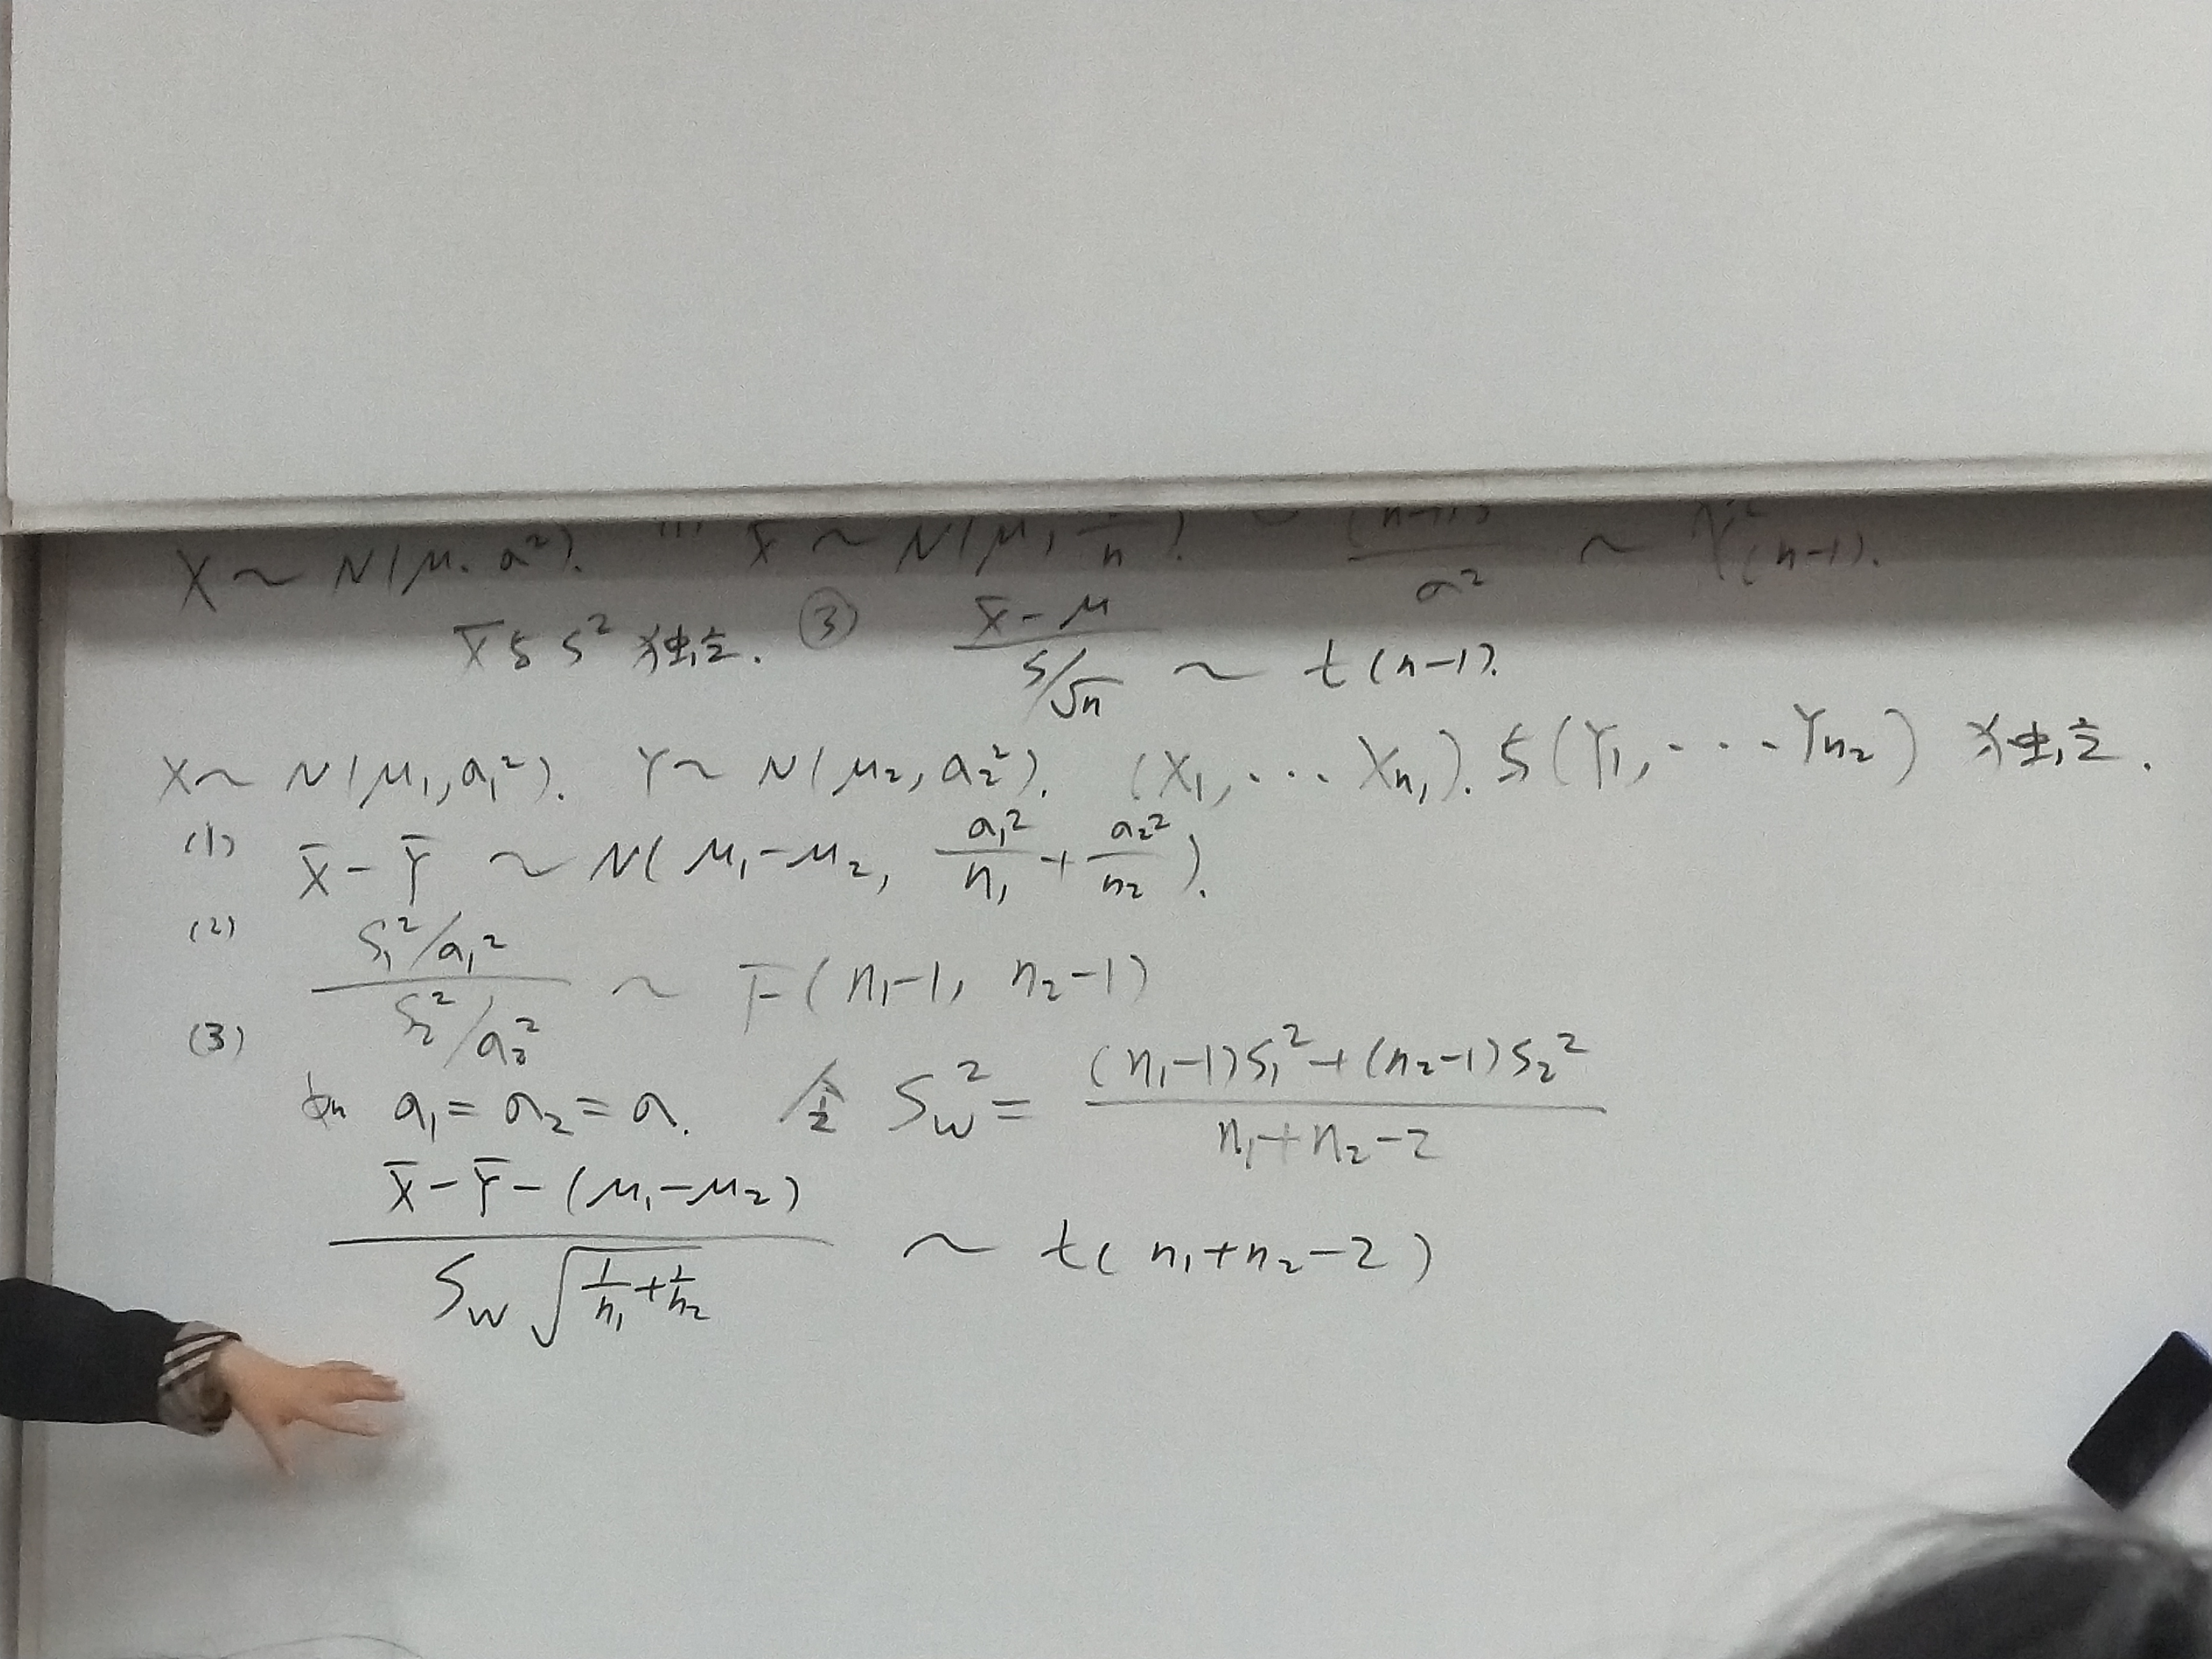 X ~ N(μ, σ²). X̄ ~ N(μ, /n). (n-1)S²/σ² ~ χ²(n-1).
X̄与S²独立. ③ (X̄-μ)/(S/√n) ~ t(n-1).
X ~ N(μ₁, σ₁²). Y ~ N(μ₂, σ₂²). (X₁, ... Xn₁). 与(Y₁, ... Yn₂) 独立.
(1) X̄-Ȳ ~ N(μ₁-μ₂, σ₁²/n₁ + σ₂²/n₂).
(2) (S₁²/σ₁²)/(S₂²/σ₂²) ~ F(n₁-1, n₂-1)
(3) 如 σ₁=σ₂=σ. 令 S_w² = ((n₁-1)S₁²+(n₂-1)S₂²)/(n₁+n₂-2)
(X̄-Ȳ-(μ₁-μ₂))/(S_w√(1/n₁+1/n₂)) ~ t(n₁+n₂-2)